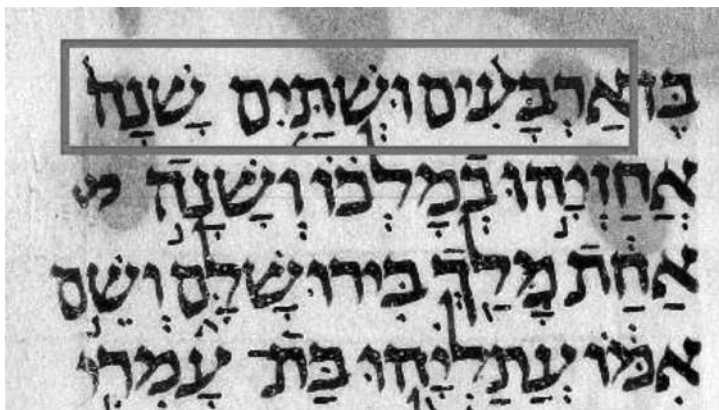 בֶּן־אַרְבָּעִים וּשְׁתַּיִם שָׁנָה
אֲחַזְיָהוּ בְמָלְכוֹ וְשָׁנָה
אַחַת מָלַךְ בִּירוּשָׁלִָם וְשֵׁם
אִמּוֹ עֲתַלְיָהוּ בַּת־ עָמְרִי